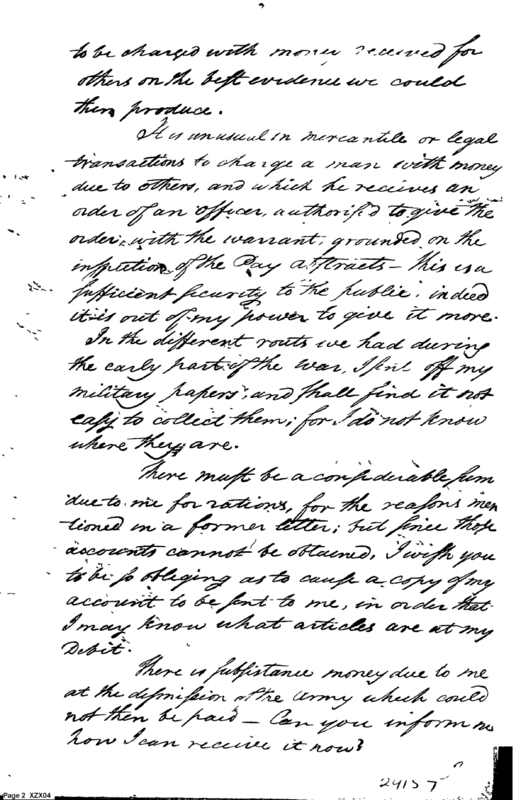 to be charged with money received for
others on the best evidence we could
then produce.
It is unusual in mercantile or legal
transactions to charge a man with money
due to others, and which he receives an
order of an officer, authoris'd to give the
order, with the warrant, grounded on the
inspection of the Pay abstracts – this is a
sufficient security to the public; indeed
it is out of my power to give it more.
In the different routs we had during
the early part of the war, I sent off my
military papers, and shall find it not
easy to collect them; for I do not know
where they are.
There must be a considerable sum
due to me for rations, for the reasons men
tioned in a former letter; but since those
accounts cannot be obtained, I wish you
to be so obliging as to cause a copy of my
account to be sent to me, in order that
I may know what articles are at my
Debit.
There is subsistance money due to me
at the dismission of the Army which could
not then be paid – Can you inform me
how I can receive it now?
Page 2 XZX04